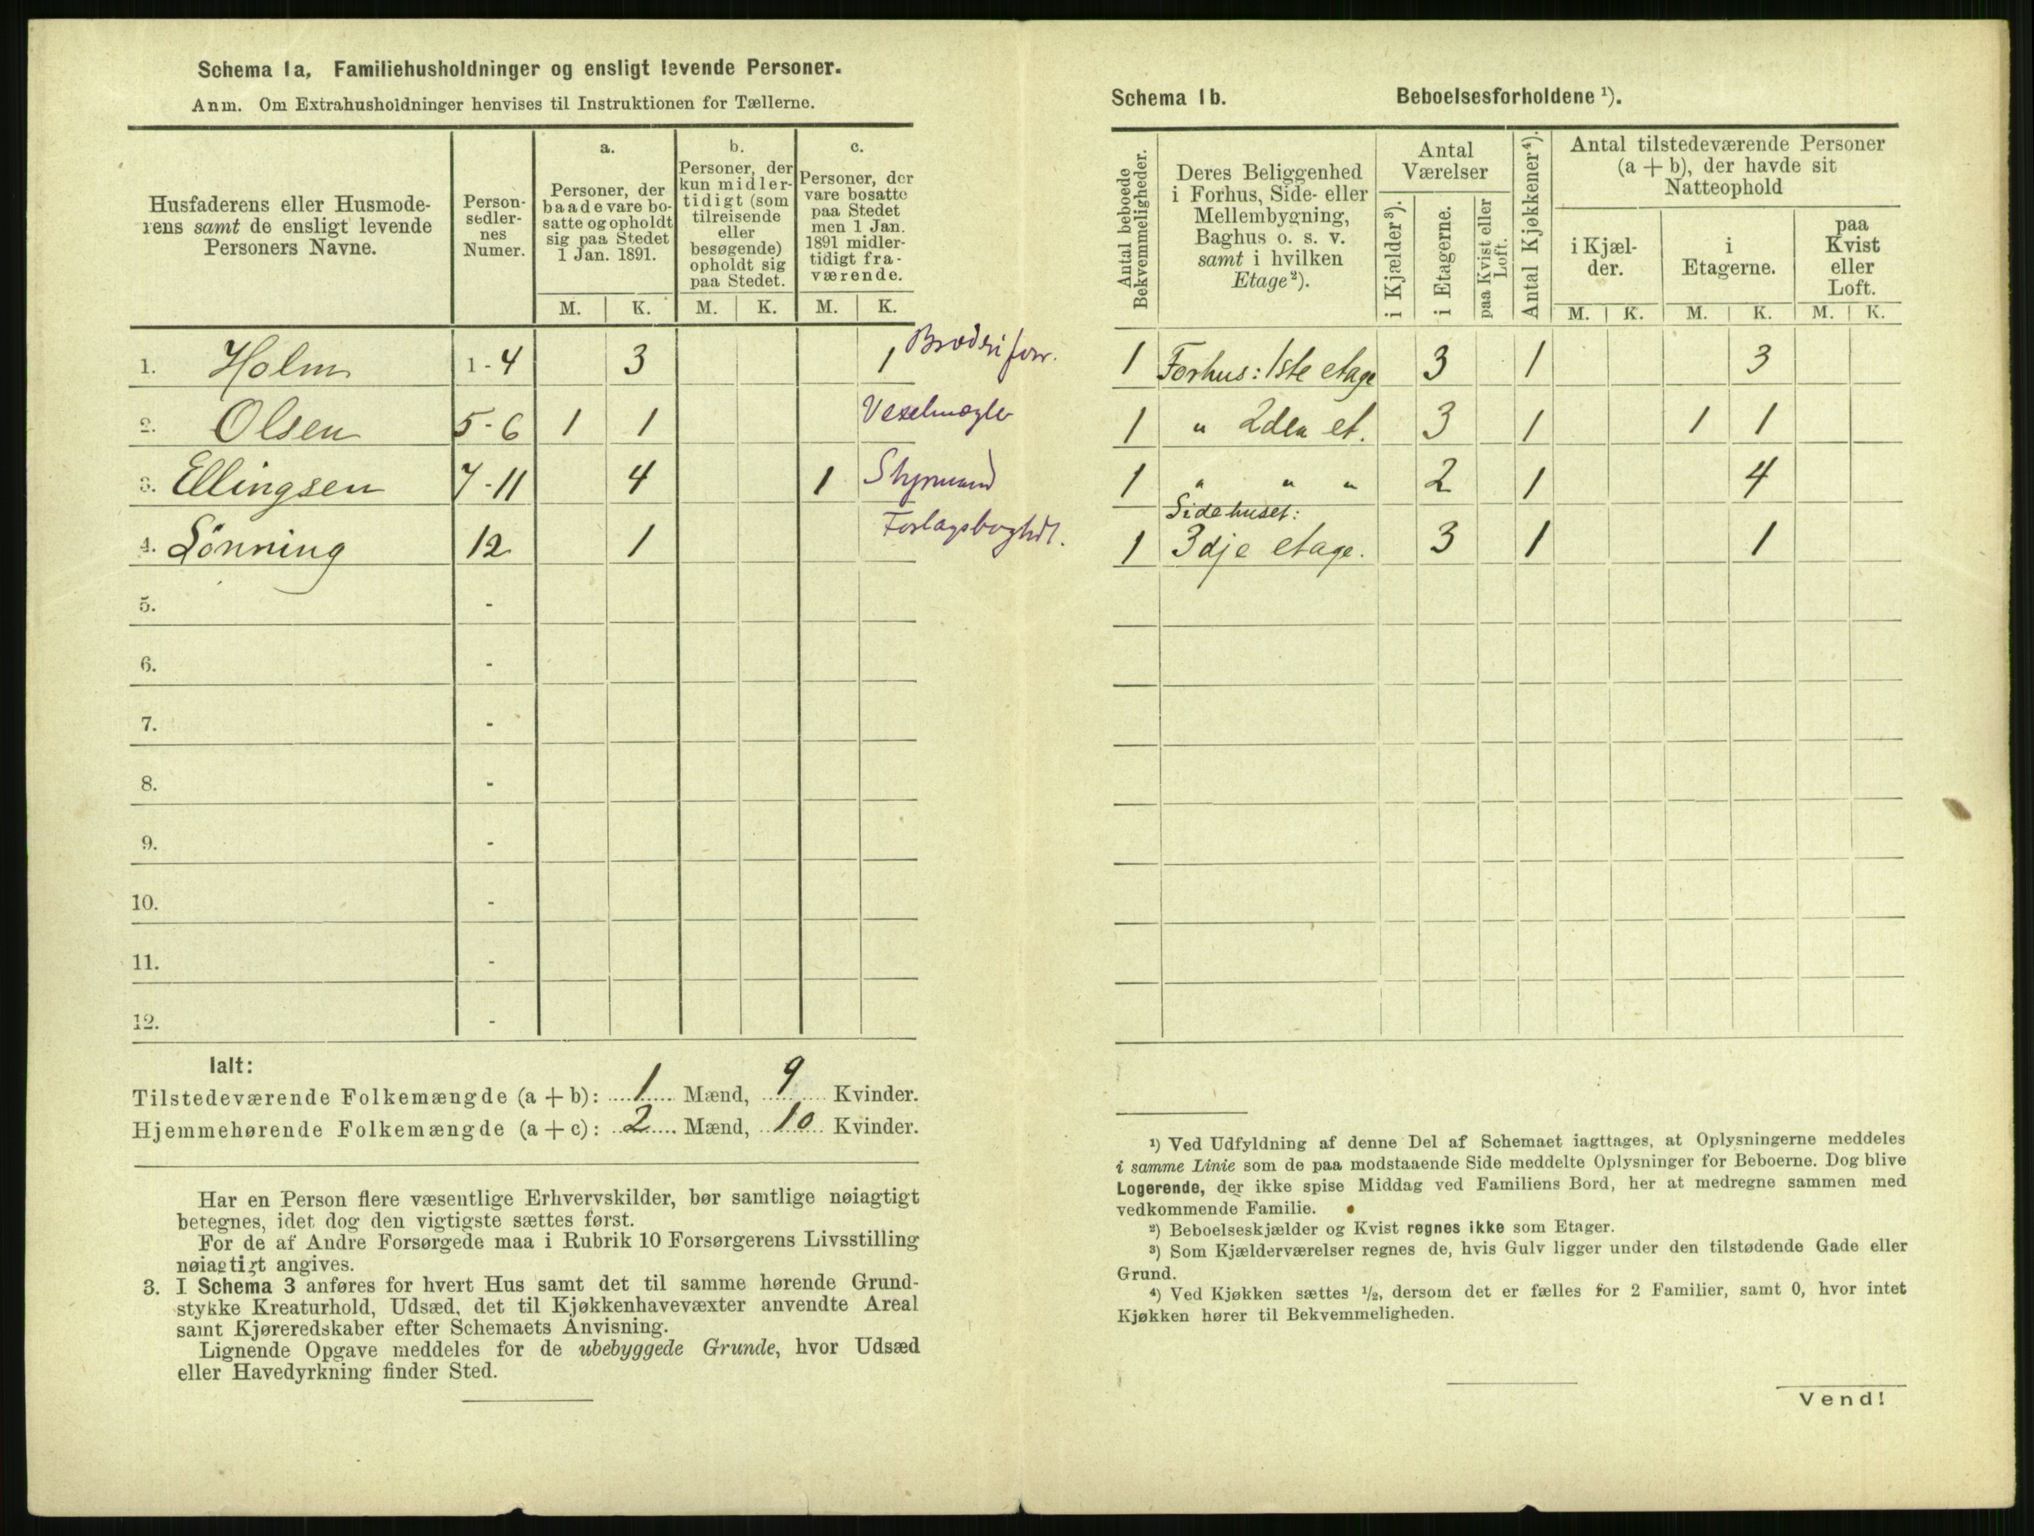 Schema 1a, Familiehusholdninger og ensligt levende Personer.
Anm. Om Extrahusholdninger henvises til Instruktionen for Tællerne.
Husfaderens eller Husmode-
rens samt de ensligt levende
Personers Navne.
Person-
sedler-
nes
Numer.
a.
Personer, der
baade vare bo-
satte og opholdt
sig paa Stedet
1 Jan. 1891.
b.
Personer, der
kun midler-
tidigt (som
tilreisende
eller
besøgende)
opholdt sig
paa Stedet.
c.
Personer, der
vare bosatte
paa Stedet
men 1 Jan.
1891 midler-
tidigt fra-
værende.
M. K. M. K. M. K.
1. Holm 1-4 3 1 Broderiforr.
2. Olsen 5-6 1 1 Vexelmægler
3. Ellingsen 7-11 4 1 Styrmand
4. Lönning 12 1 Forlagsboghdl.
5. -
6. -
7. -
8. -
9. -
10. -
11. -
12. -
Ialt:
Tilstedeværende Folkemængde (a + b): 1 Mænd, 9 Kvinder.
Hjemmehørende Folkemængde (a + c): 2 Mænd, 10 Kvinder.
Har en Person flere væsentlige Erhvervskilder, bør samtlige nøiagtigt
betegnes, idet dog den vigtigste sættes først.
For de af Andre Forsørgede maa i Rubrik 10 Forsørgerens Livsstilling
nøiagtigt angives.
3. I Schema 3 anføres for hvert Hus samt det til samme hørende Grund-
stykke Kreaturhold, Udsæd, det til Kjøkkenhavevæxter anvendte Areal
samt Kjøreredskaber efter Schemaets Anvisning.
Lignende Opgave meddeles for de ubebyggede Grunde, hvor Udsæd
eller Havedyrkning finder Sted.
Schema 1b. Beboelsesforholdene ¹).
Antal beboede
Bekvemmeligheder.
Deres Beliggenhed
i Forhus, Side- eller
Mellembygning,
Baghus o. s. v.
samt i hvilken
Etage²).
Antal
Værelser
i Kjælder³).
i Etagerne.
paa Kvist eller
Loft.
Antal Kjøkkener⁴).
Antal tilstedeværende Personer
(a + b), der havde sit
Natteophold
i Kjæl-
der.
i
Etagerne.
paa
Kvist
eller
Loft.
M. K. M. K. M. K.
1 Forhus: 1ste etage 3 1 3
1 " 2den et. 3 1 1 1
1 " " " 2 1 4
Sidehuset:
1 3dje etage. 3 1 1
¹) Ved Udfyldning af denne Del af Schemaet iagttages, at Oplysningerne meddeles
i samme Linie som de paa modstaaende Side meddelte Oplysninger for Beboerne. Dog blive
Logerende, der ikke spise Middag ved Familiens Bord, her at medregne sammen med
vedkommende Familie.
²) Beboelseskjælder og Kvist regnes ikke som Etager.
³) Som Kjælderværelser regnes de, hvis Gulv ligger under den tilstødende Gade eller
Grund.
⁴) Ved Kjøkken sættes ½, dersom det er fælles for 2 Familier, samt 0, hvor intet
Kjøkken hører til Bekvemmeligheden.
Vend!